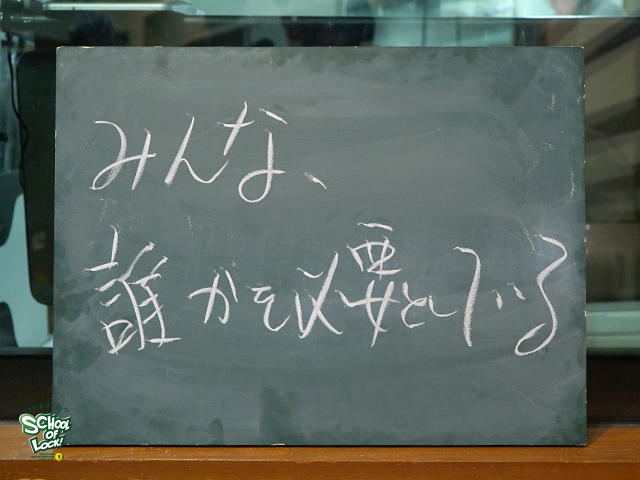 みんな、
誰かを必要としている
SCHOOL
OF
LOCK!